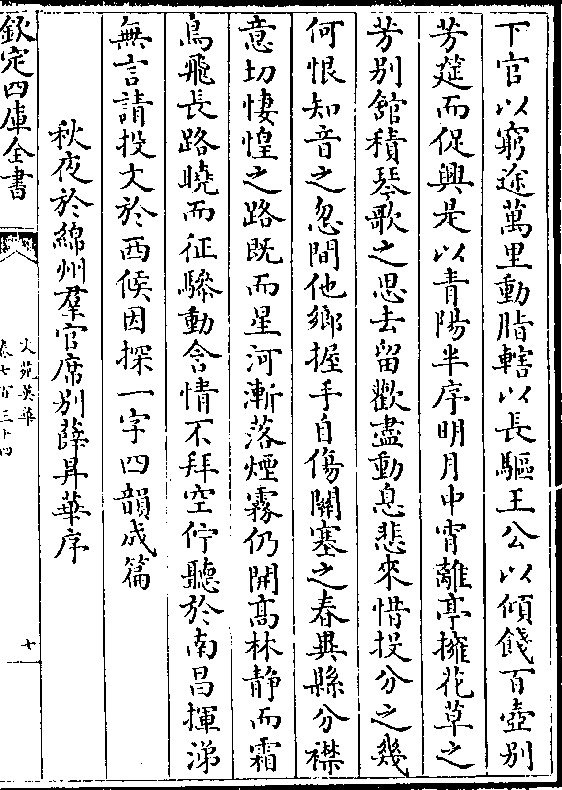 下官以窮途萬里動脂轄以長驅王公以傾餞百壺别
芳筵而促興是以青陽半序明月中宵離亭擁花草之
芳别館積琴歌之思去留歡盡動息悲來惜投分之幾
何恨知音之忽間他鄉握手自傷關塞之春異縣分襟
意切悽惶之路既而星河漸落煙霧仍開髙林静而霜
鳥飛長路曉而征驂動含情不拜空佇聽於南昌揮涕
無言請投文於西候因探一字四韻成篇
秋夜於綿州羣官席别薛昇華序
欽定四庫全書
文苑英華
卷七百三十四
十